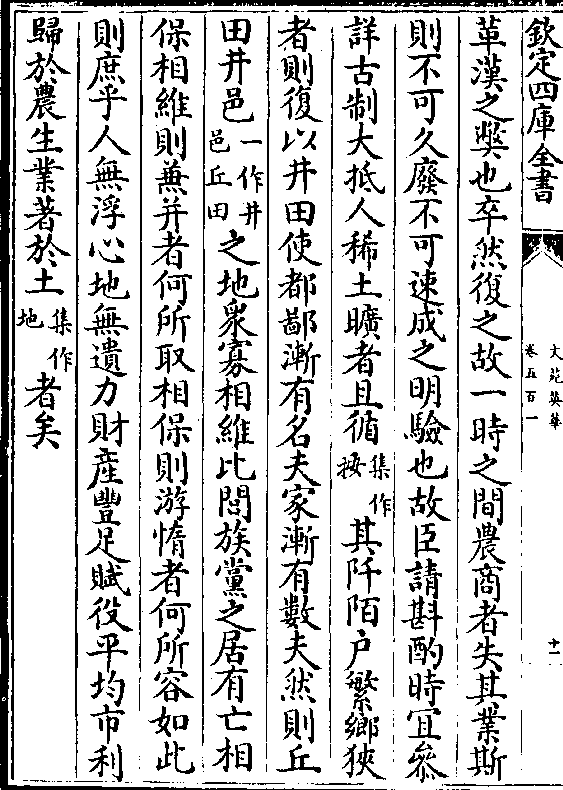 欽定四庫全書
文苑英華
卷五百一
十一
革漢之弊也卒然復之故一時之間農商者失其業斯
則不可久廢不可速成之明驗也故臣請斟酌時宜參
詳古制大抵人稀土曠者且循集作按其阡陌户繁鄉狹
者則復以井田使都鄙漸有名夫家漸有數夫然則丘
田井邑一作井邑丘田之地衆寡相維比閭族黨之居有亡相
保相維則兼并者何所取相保則游惰者何所容如此
則庶乎人無浮心地無遺力財産豐足賦役平均市利
歸於農生業著於土集作地者矣